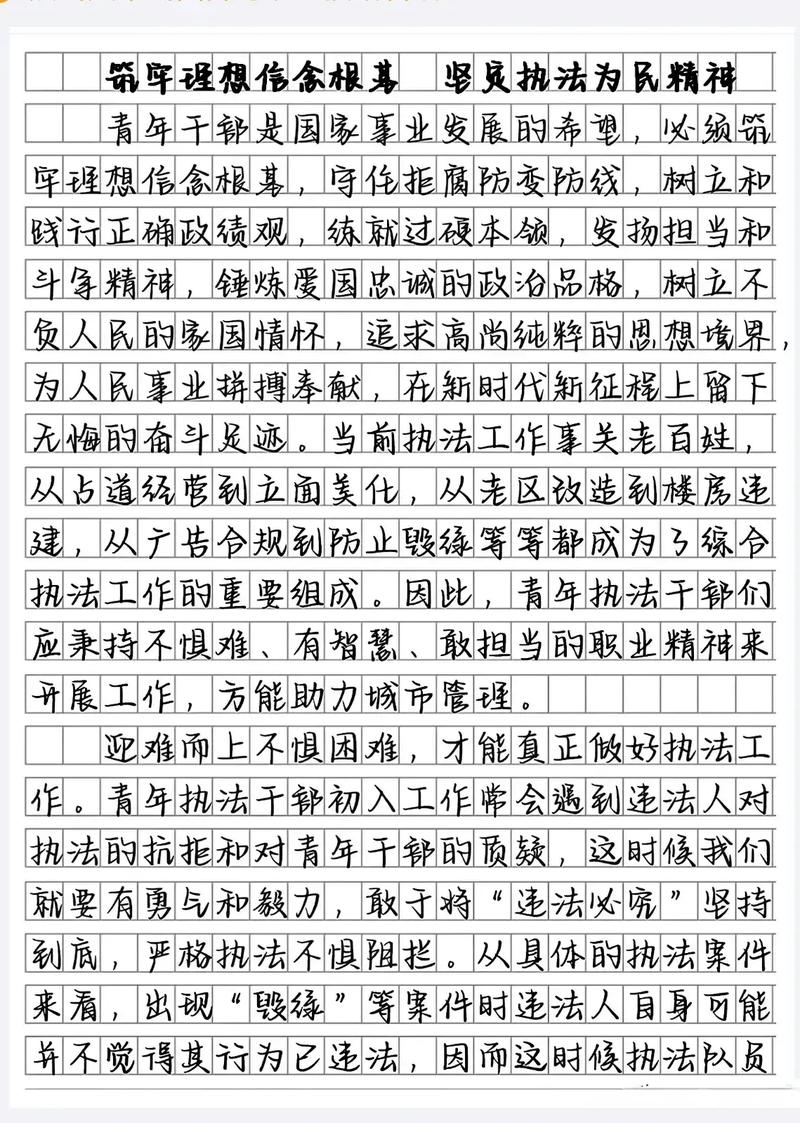 筑牢理想信念根基 坚定执法为民精神
青年干部是国家事业发展的希望，必须筑
牢理想信念根基，守住拒腐防变防线，树立和
践行正确政绩观，练就过硬本领，发扬担当和
斗争精神，锤炼爱国忠诚的政治品格，树立不
负人民的家国情怀，追求高尚纯粹的思想境界，
为人民事业拼搏奉献，在新时代新征程上留下
无悔的奋斗足迹。当前执法工作事关老百姓，
从占道经营到立面美化，从老区改造到楼房违
建，从广告合规到防止毁绿等等都成为了综合
执法工作的重要组成。因此，青年执法干部们
应秉持不惧难、有智慧、敢担当的职业精神来
开展工作，方能助力城市管理。
迎难而上不惧困难，才能真正做好执法工
作。青年执法干部初入工作常会遇到违法人对
执法的抗拒和对青年干部的质疑，这时候我们
就要有勇气和毅力，敢于将“违法必究”坚持
到底，严格执法不惧阻拦。从具体的执法案件
来看，出现“毁绿”等案件时违法人自身可能
并不觉得其行为已违法，因而这时候执法队员